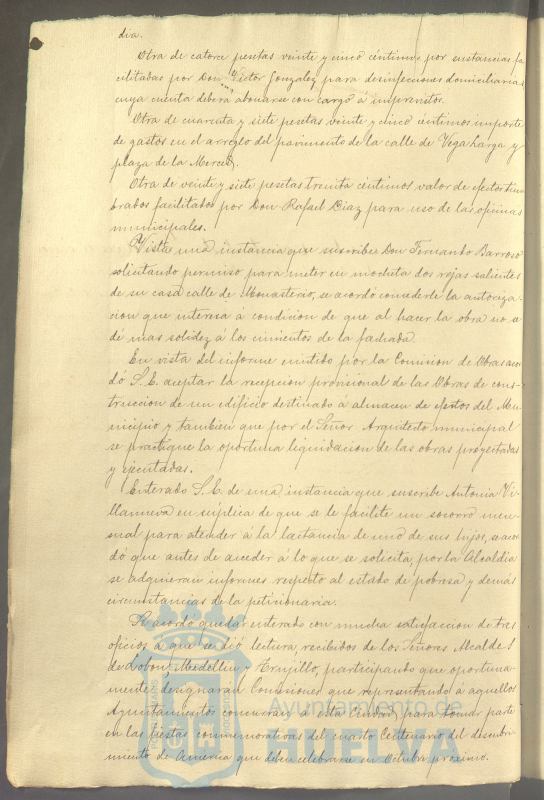 dia.
Otra de catorce pesetas veinte y cinco céntimos por sustancias fa
cilitadas por Don Victor Gonzalez para desinfecciones domiciliarias
cuya cuenta deberá abonarse con cargo á imprevistos.
Otra de cuarenta y siete pesetas veinte y cinco centimos importe
de gastos en el arreglo del pavimento de la calle de Vega Larga y
plaza de la Merced.
Otra de veinte y siete pesetas treinta céntimos valor de efectos tim
brados facilitados por Don Rafael Diaz para uso de las oficinas
municipales.
Vista una instancia que suscribe Don Fernando Barroso
solicitando permiso para meter en mocheta dos rejas salientes
de su casa calle de Monasterio, se acordó concederle la autoriza-
cion que interesa á condicion de que al hacer la obra no se
dé mas solidez á los cimientos de la fachada.
En vista del informe emitido por la Comision de Obras acor
dó S.E. aceptar la recepcion provisional de las Obras de cons-
truccion de un edificio destinado á almacen de efectos del Mu-
nicipio y tambien que por el Señor Arquitecto municipal
se practique la oportuna liquidacion de las obras proyectadas
y ejecutadas.
Enterado S.E. de una instancia que suscribe Antonia Vi-
llanueva en súplica de que se le facilite un socorro men-
sual para atender á la lactancia de uno de sus hijos, se acor
dó que antes de acceder á lo que se solicita, por la Alcaldia
se adquieran informes respecto al estado de pobreza y demás
circunstancias de la peticionaria.
Se acordó quedar enterado con mucha satisfaccion de tres
oficios á que se dió lectura, recibidos de los Señores Alcaldes
de Lobon, Medellin y Trujillo, participando que oportuna-
mente designaran Comisiones que representando á aquellos
Ayuntamientos concurran á esta Ciudad, para tomar parte
en las fiestas conmemorativas del cuarto Centenario del descubri-
miento de America que deben celebrarse en Octubre proximo.
Ayuntamiento de
HUELVA